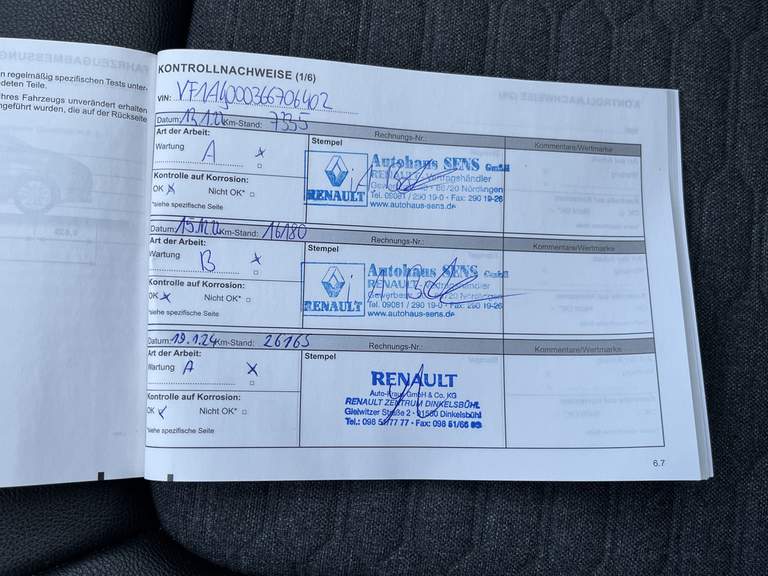 n regelmäßig spezifischen Tests unter-
deten Teile.
hres Fahrzeugs unverändert erhalten
ngeführt wurden, die auf der Rückseite
KONTROLLNACHWEISE (1/6)
VIN:
Datum: Km-Stand: 7335 Rechnungs-Nr.: Kommentare/Wertmarke
Art der Arbeit: Stempel
Wartung A x
Kontrolle auf Korrosion:
OK x Nicht OK*
*siehe spezifische Seite
RENAULT
Autohaus SENS GmbH
86720 Nördlingen
Tel. 09081 / 290 19-0 · Fax: 290 19-26
www.autohaus-sens.de
Datum: Km-Stand: 16180 Rechnungs-Nr.: Kommentare/Wertmarke
Art der Arbeit: Stempel
Wartung B x
Kontrolle auf Korrosion:
OK x Nicht OK*
*siehe spezifische Seite
RENAULT
Autohaus SENS GmbH
Nördlingen
Tel. 09081 / 290 19-0 · Fax: 290 19-26
www.autohaus-sens.de
Datum: 19.1.24 Km-Stand: 26165 Rechnungs-Nr.: Kommentare/Wertmarke
Art der Arbeit: Stempel
Wartung A x
Kontrolle auf Korrosion:
OK Nicht OK*
*siehe spezifische Seite
RENAULT
GmbH & Co. KG
RENAULT ZENTRUM DINKELSBÜHL
Gleiwitzer Straße 2 · 91550 Dinkelsbühl
6.7